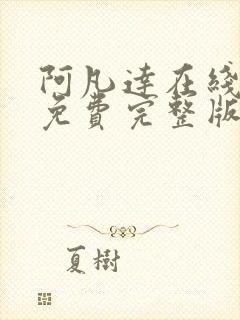 阿凡達在綫
免費完整版
夏樹